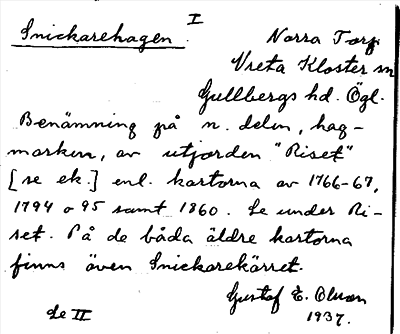 I
Snickarehagen.
Norra Torp
Vreta Kloster sn
Gullbergs hd. Ögl.
Benämning på n. delen, hag-
marken, av utjorden "Riset"
[se ek.] enl. kartorna av 1766-67,
1794 o 95 samt 1860. Se under Ri-
set. På de båda äldre kartorna
finns även Snickarekärret.
Gustaf E. Olson
1937.
Se II